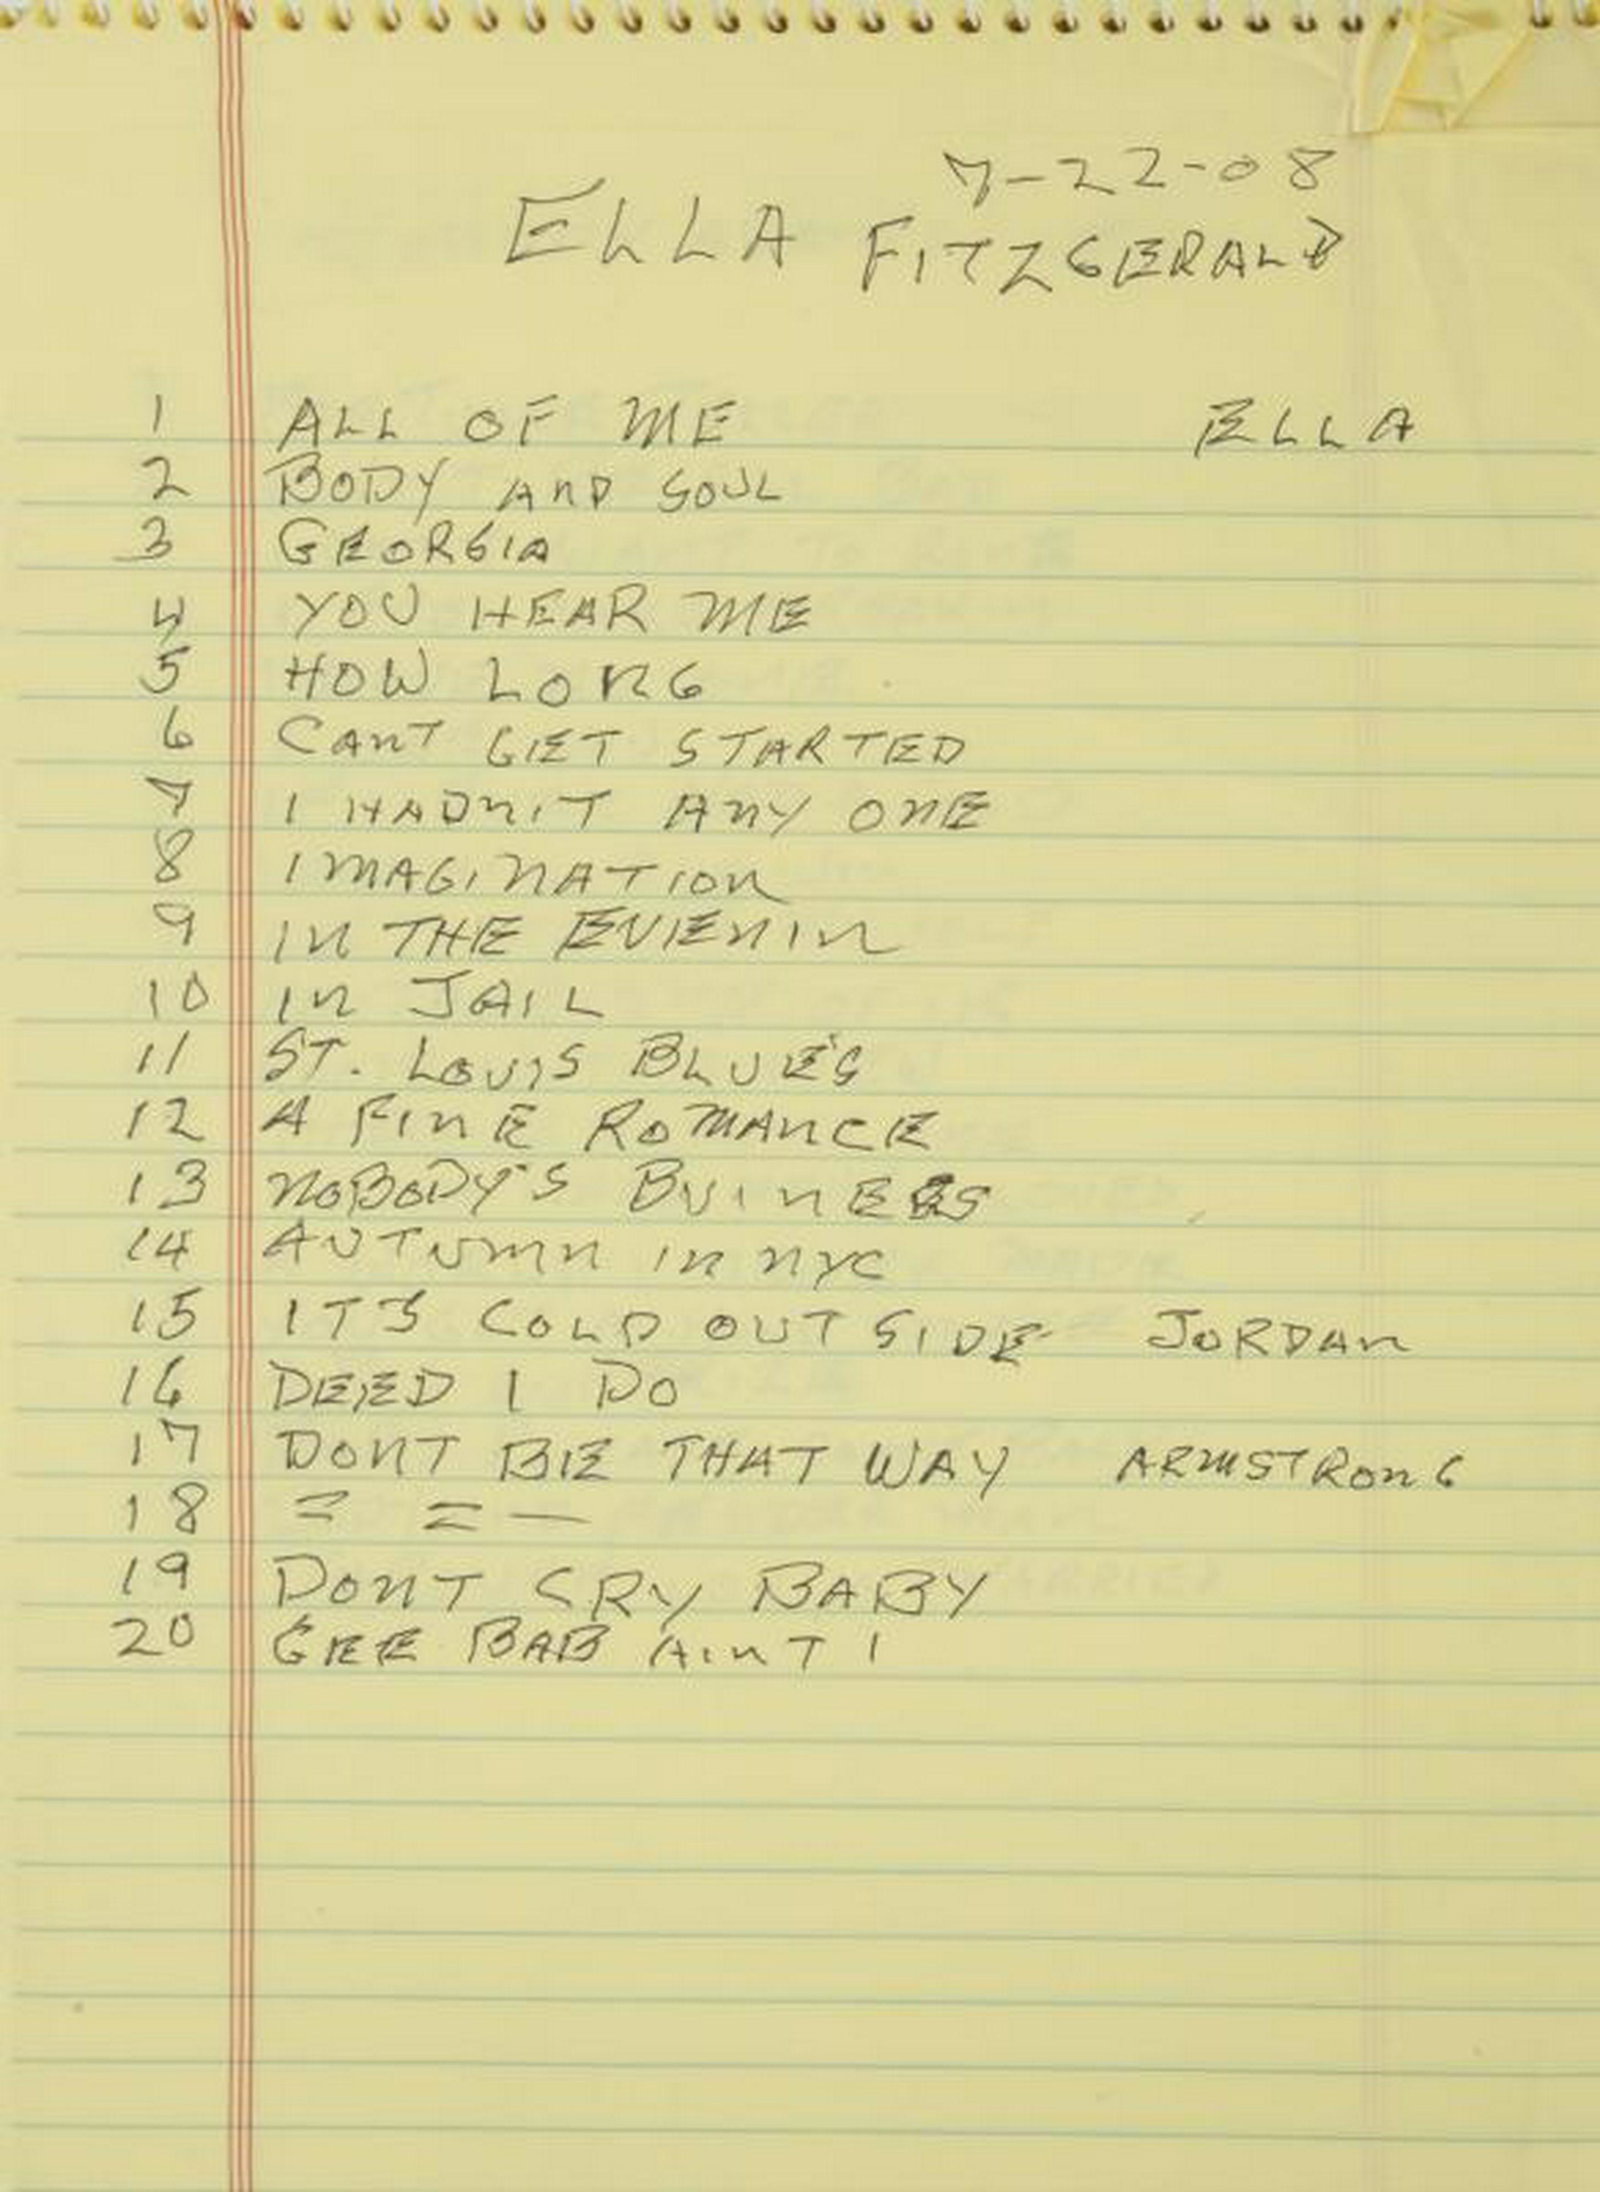 7-22-08
ELLA FITZGERALD
1 ALL OF ME ELLA
2 BODY AND SOUL
3 GEORGIA
4 YOU HEAR ME
5 HOW LONG
6 CANT GET STARTED
7 I HADNIT ANY ONE
8 IMAGINATION
9 IN THE EVENIN
10 IN JAIL
11 ST. LOUIS BLUE'S
12 A FINE ROMANCE
13 NOBODY'S BUINESS
14 AUTUMN IN NYC
15 IT'S COLD OUT SIDE JORDAN
16 DEED I DO
17 DONT BE THAT WAY ARMSTRONG
18 = = —
19 DONT CRY BABY
20 GEE BAB AINT I